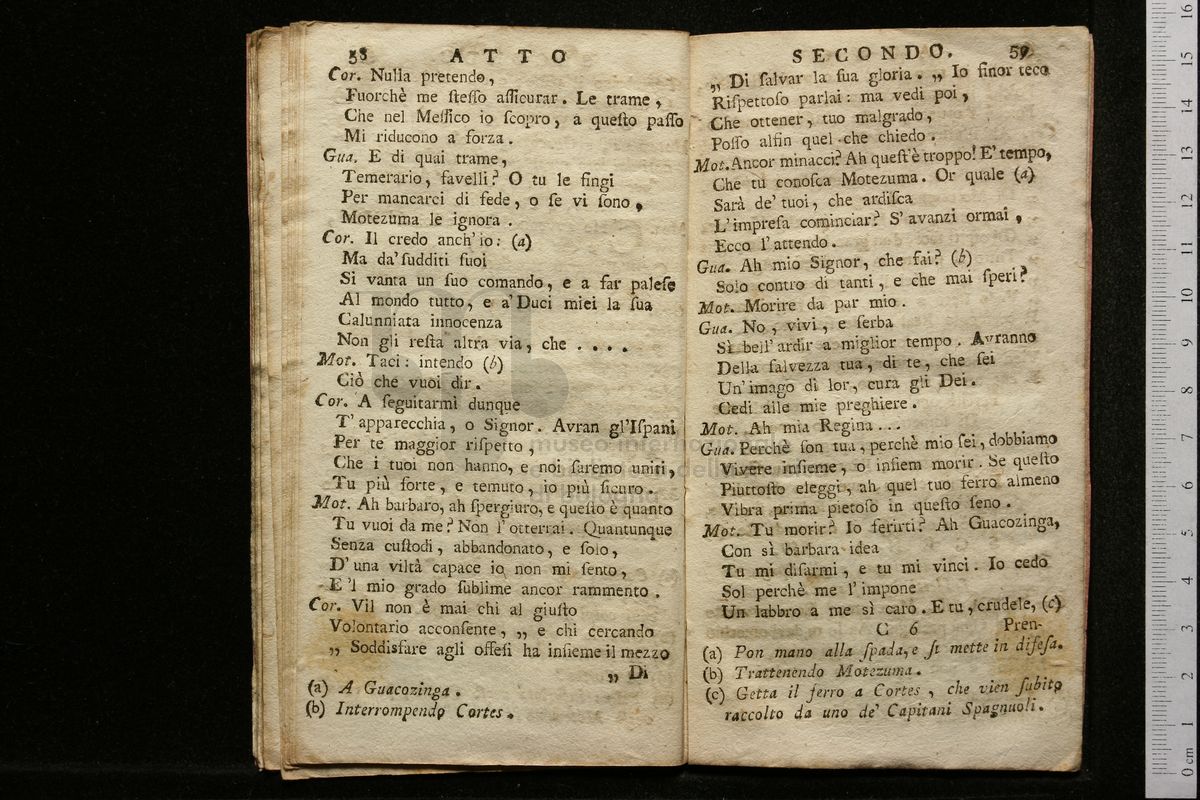 58 ATTO
Cor. Nulla pretendo,
Fuorchè me ſteſſo aſſicurar. Le trame,
Che nel Meſſico io ſcopro, a queſto paſſo
Mi riducono a forza.
Gua. E di quai trame,
Temerario, favelli? O tu le fingi
Per mancarci di fede, o ſe vi ſono,
Motezuma le ignora.
Cor. Il credo anch'io: (a)
Ma da'ſudditi ſuoi
Si vanta un ſuo comando, e a far paleſe
Al mondo tutto, e a'Duci miei la ſua
Calunniata innocenza
Non gli reſta altra via, che . . . .
Mot. Taci: intendo (b)
Ciò che vuoi dir.
Cor. A ſeguitarmi dunque
T'apparecchia, o Signor. Avran gl'Iſpani
Per te maggior riſpetto,
Che i tuoi non hanno, e noi ſaremo uniti,
Tu più forte, e temuto, io più ſicuro.
Mot. Ah barbaro, ah ſpergiuro, e queſto è quanto
Tu vuoi da me? Non l'otterrai. Quantunque
Senza cuſtodi, abbandonato, e ſolo,
D'una viltà capace io non mi ſento,
E 'l mio grado ſublime ancor rammento.
Cor. Vil non è mai chi al giuſto
Volontario acconſente, „ e chi cercando
„ Soddisfare agli offeſi ha inſieme il mezzo
„ Di
(a) A Guacozinga.
(b) Interrompendo Cortes.
SECONDO. 59
„ Di ſalvar la ſua gloria. „ Io finor teco
Riſpettoſo parlai: ma vedi poi,
Che ottener, tuo malgrado,
Poſſo alfin quel che chiedo.
Mot. Ancor minacci? Ah queſt'è troppo! E' tempo,
Che tu conoſca Motezuma. Or quale (a)
Sarà de' tuoi, che ardiſca
L'impreſa cominciar? S'avanzi ormai,
Ecco l'attendo.
Gua. Ah mio Signor, che fai? (b)
Solo contro di tanti, e che mai ſperi?
Mot. Morire da par mio.
Gua. No, vivi, e ſerba
Sì bell'ardir a miglior tempo. Avranno
Della ſalvezza tua, di te, che ſei
Un'imago di lor, cura gli Dei.
Cedi alle mie preghiere.
Mot. Ah mia Regina...
Gua. Perchè ſon tua, perchè mio ſei, dobbiamo
Vivere inſieme, o inſiem morir. Se queſto
Piuttoſto eleggi, ah quel tuo ferro almeno
Vibra prima pietoſo in queſto ſeno.
Mot. Tu morir? Io ferirti? Ah Guacozinga,
Con sì barbara idea
Tu mi diſarmi, e tu mi vinci. Io cedo
Sol perchè me l'impone
Un labbro a me sì caro. E tu, crudele, (c)
C 6 Pren-
(a) Pon mano alla ſpada, e ſi mette in difeſa.
(b) Trattenendo Motezuma.
(c) Getta il ferro a Cortes, che vien ſubito
raccolto da uno de' Capitani Spagnuoli.